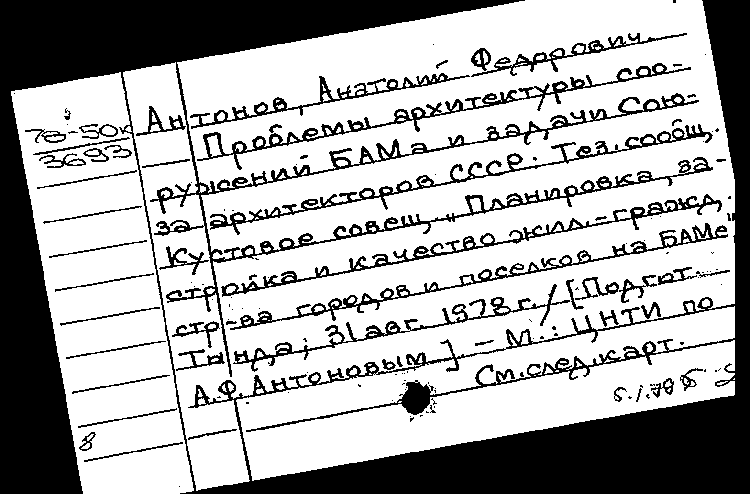 78-50к
3693
Антонов, Анатолий Федорович.
Проблемы архитектуры соо-
ружений БАМа и задачи Сою-
за архитекторов СССР: Тез. сообщ.
Кустовое совещ. „Планировка, за-
стройка и качество жил.-гражд.
стр-ва городов и поселков на БАМе"
Тында; 31 авг. 1978 г. / [Подгот.
А.Ф. Антоновым]. – М.: ЦНТИ по
См. след. карт.
8